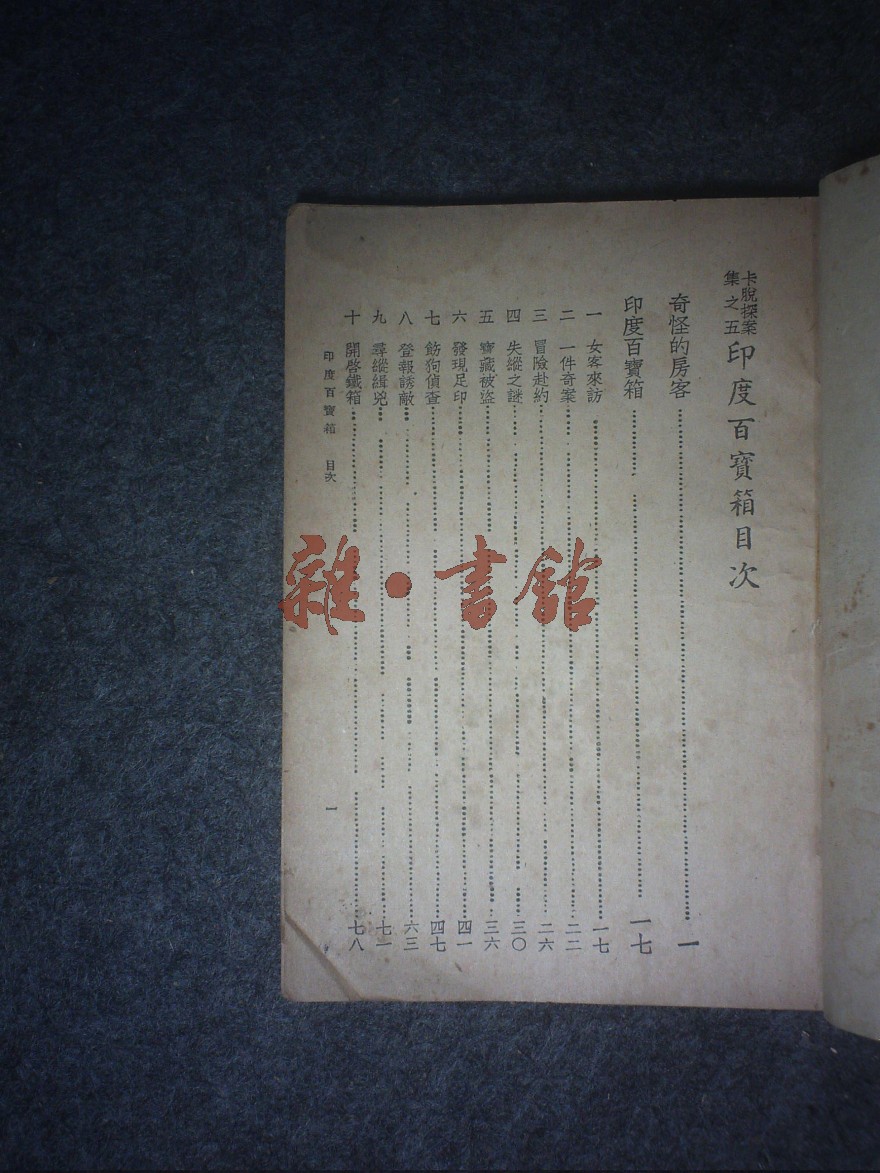 卡脫探案集之五 印度百寶箱目次
奇怪的房客 一
印度百寶箱 一七
一 女客來訪 一七
二 一件奇案 二二
三 冒險赴約 二六
四 失縱之謎 三〇
五 寶藏被盜 三六
六 發現足印 四一
七 飭狗偵查 四七
八 登報誘敵 六三
九 尋縱緝兇 七一
十 開啓鐵箱 七八
印度百寶箱 目次 一
雜·書館